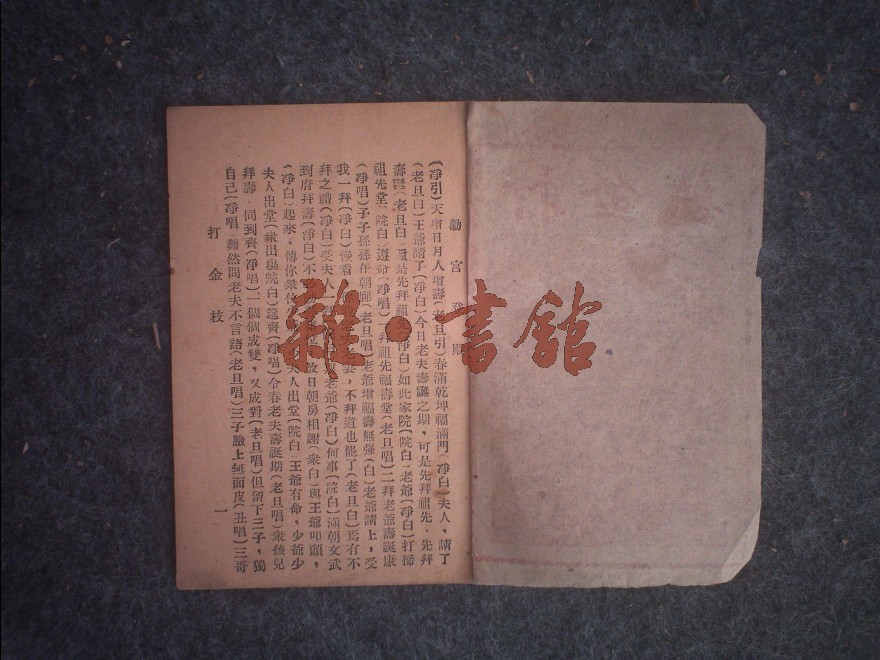 勸宮登殿
(凈引)天增日月人增壽(老旦引)春滿乾坤福滿門(凈白)夫人,請了
(老旦白)王爺請了(凈白)今日老夫壽誕之期,可是先拜祖先,先拜
壽誕(老旦白)還是先拜祖先(凈白)如此家院(院白)老爺(凈白)打掃
祖先堂(院白)遵命(凈唱)一拜祖先福壽堂(老旦唱)二拜老爺壽誕康
(凈唱)子子孫孫在朝廊(老旦唱)老爺增福壽無強(白)老爺請上,受
我一拜(凈白)慢着 老妻,不拜道也罷了(老旦白)焉有不
拜之禮(凈白)受夫人一 老爺(凈白)何事(院白)滿朝文武
到府拜壽(凈白)不 改日朝房相謝(衆白)與王爺叩頭,
(凈白)起來、傳你衆位 夫人出堂(院白)王爺有命,少爺少
夫人出堂(衆出場院白)筵齊(凈唱)今春老夫壽誕期(老旦唱)衆孩兒
拜壽,同到齊(凈唱)一個個成雙,又成對(老旦唱)但留下三子,獨
自己(凈唱)雖然問老夫不言語(老旦唱)三子臉上無面皮(丑唱)三哥
打金枝
一
雜·書館